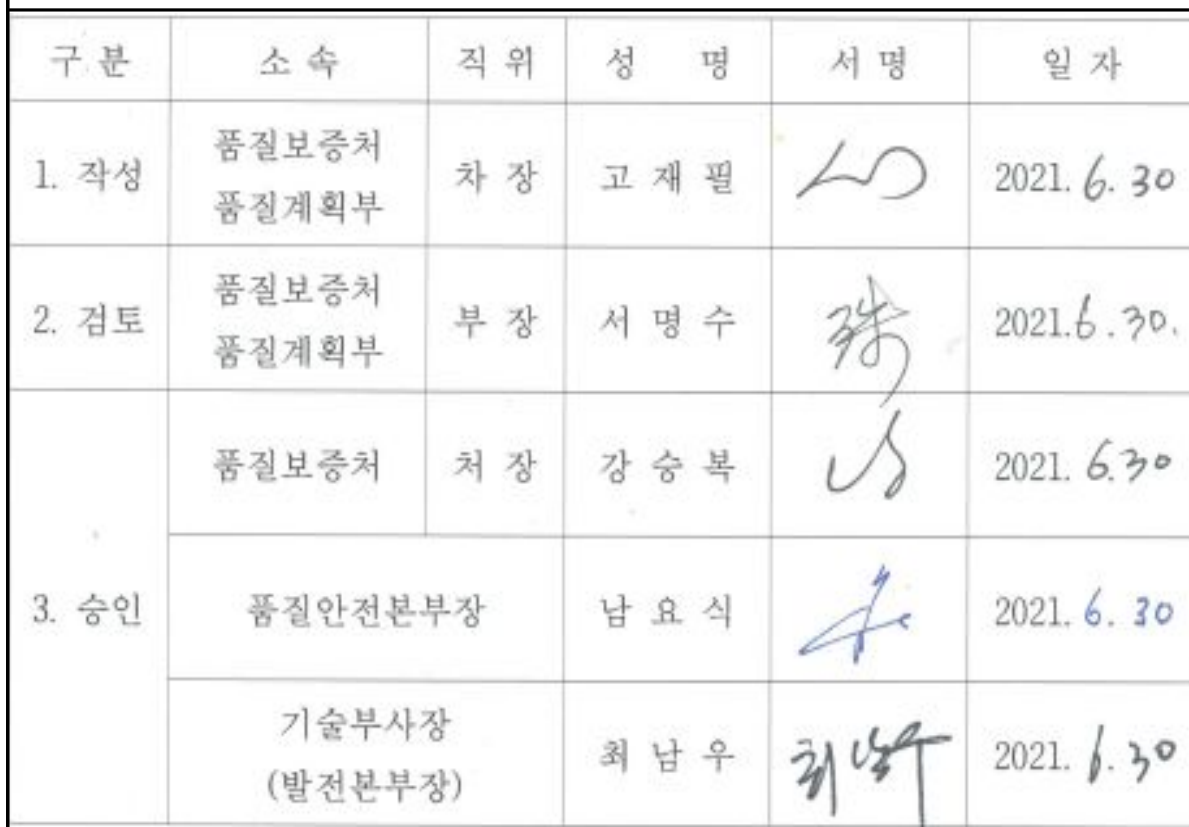 구 분 소 속 직 위 성 명 서 명 일 자
1. 작성 품질보증처 품질계획부 차 장 고 재 필 2021. 6. 30
2. 검토 품질보증처 품질계획부 부 장 서 명 수 2021. 6. 30.
3. 승인 품질보증처 처 장 강 승 복 2021. 6. 30
품질안전본부장 남 요 식 2021. 6. 30
기술부사장 (발전본부장) 최 남 우 최남우 2021. 6. 30